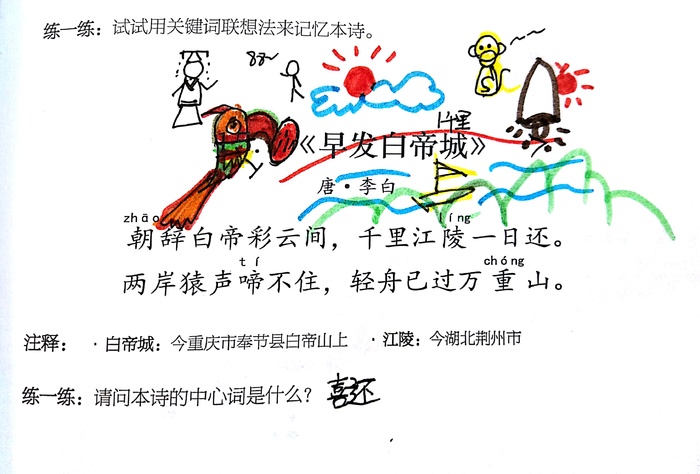 练一练：试试用关键词联想法来记忆本诗。
88~
千里
《早发白帝城》
唐·李白
zhāo líng
朝辞白帝彩云间，千里江陵一日还。
tí chóng
两岸猿声啼不住，轻舟已过万重山。
注释： ·白帝城：今重庆市奉节县白帝山上 ·江陵：今湖北荆州市
练一练：请问本诗的中心词是什么？ 喜还